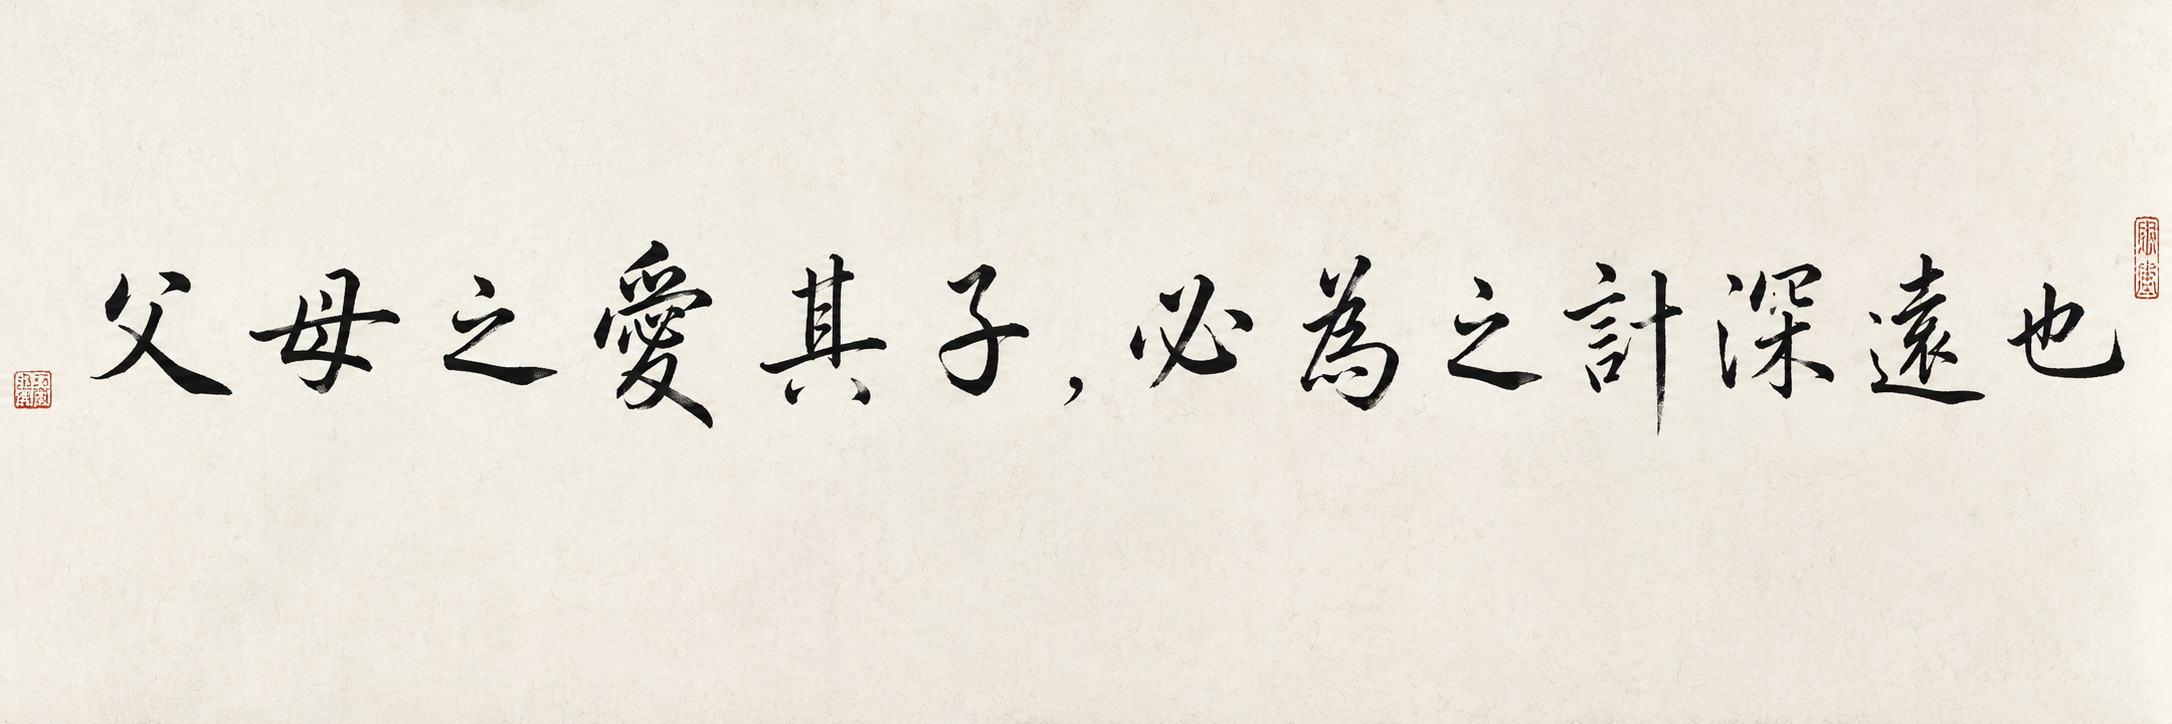 父母之愛其子，必為之計深遠也